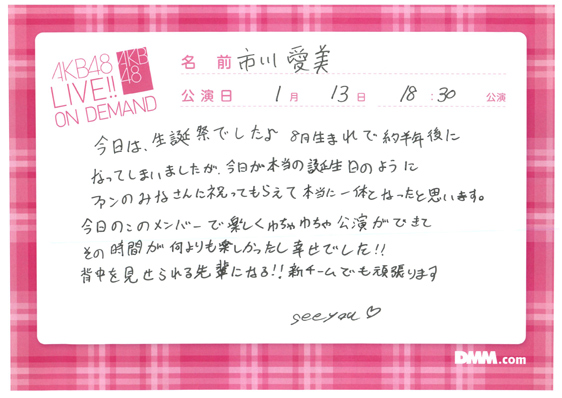 AKB48
LIVE!!
ON DEMAND
AKB
48
名 前 市川 愛美
公演日 1月 13日 18:30 公演
今日は、生誕祭でしたよ 8月生まれで約半年後に
なってしまいましたが、今日が本当の誕生日のように
ファンのみなさんに祝ってもらえて本当に一体となったと思います。
今日のこのメンバーで楽しくわちゃわちゃ公演ができて
その時間が何よりも楽しかったし幸せでした!!
背中を見せられる先輩になる!!新チームでも頑張ります
see you♡
DMM.com